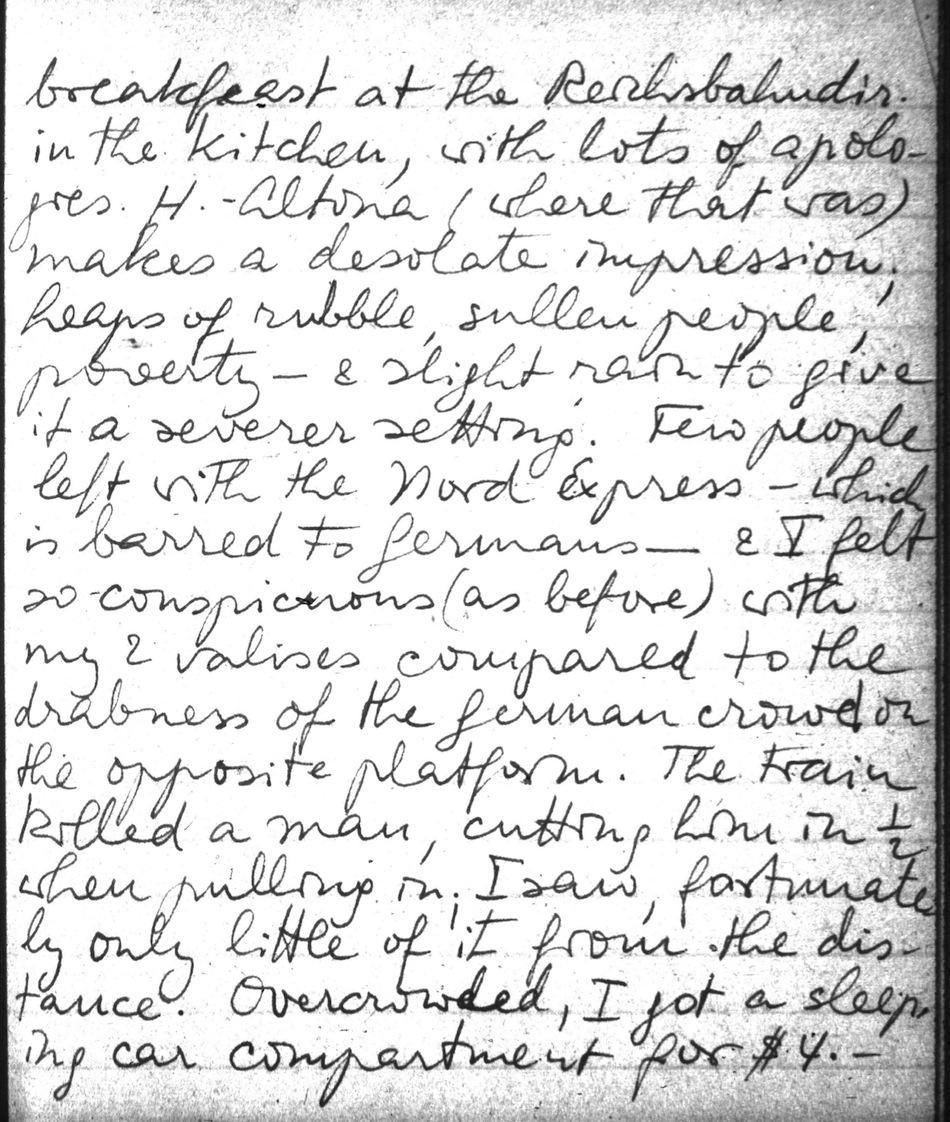 breakfeast at the Reichsbahndir.
in the kitchen, with lots of apolo-
gies. H.-Altona (where that was)
makes a desolate impression,
heaps of rubble, sullen people,
poverty – & slight rain to give
it a severer setting. Few people
left with the Nord Express – which
is barred to Germans — & I felt
so conspicuous (as before) with
my 2 valises compared to the
drabness of the German crowd on
the opposite platform. The train
killed a man, cutting him in ½
when pulling in; I saw, fortunate
ly only little of it from the dis-
tance. Overcrowded, I got a sleep-
ing car compartment for $4.–